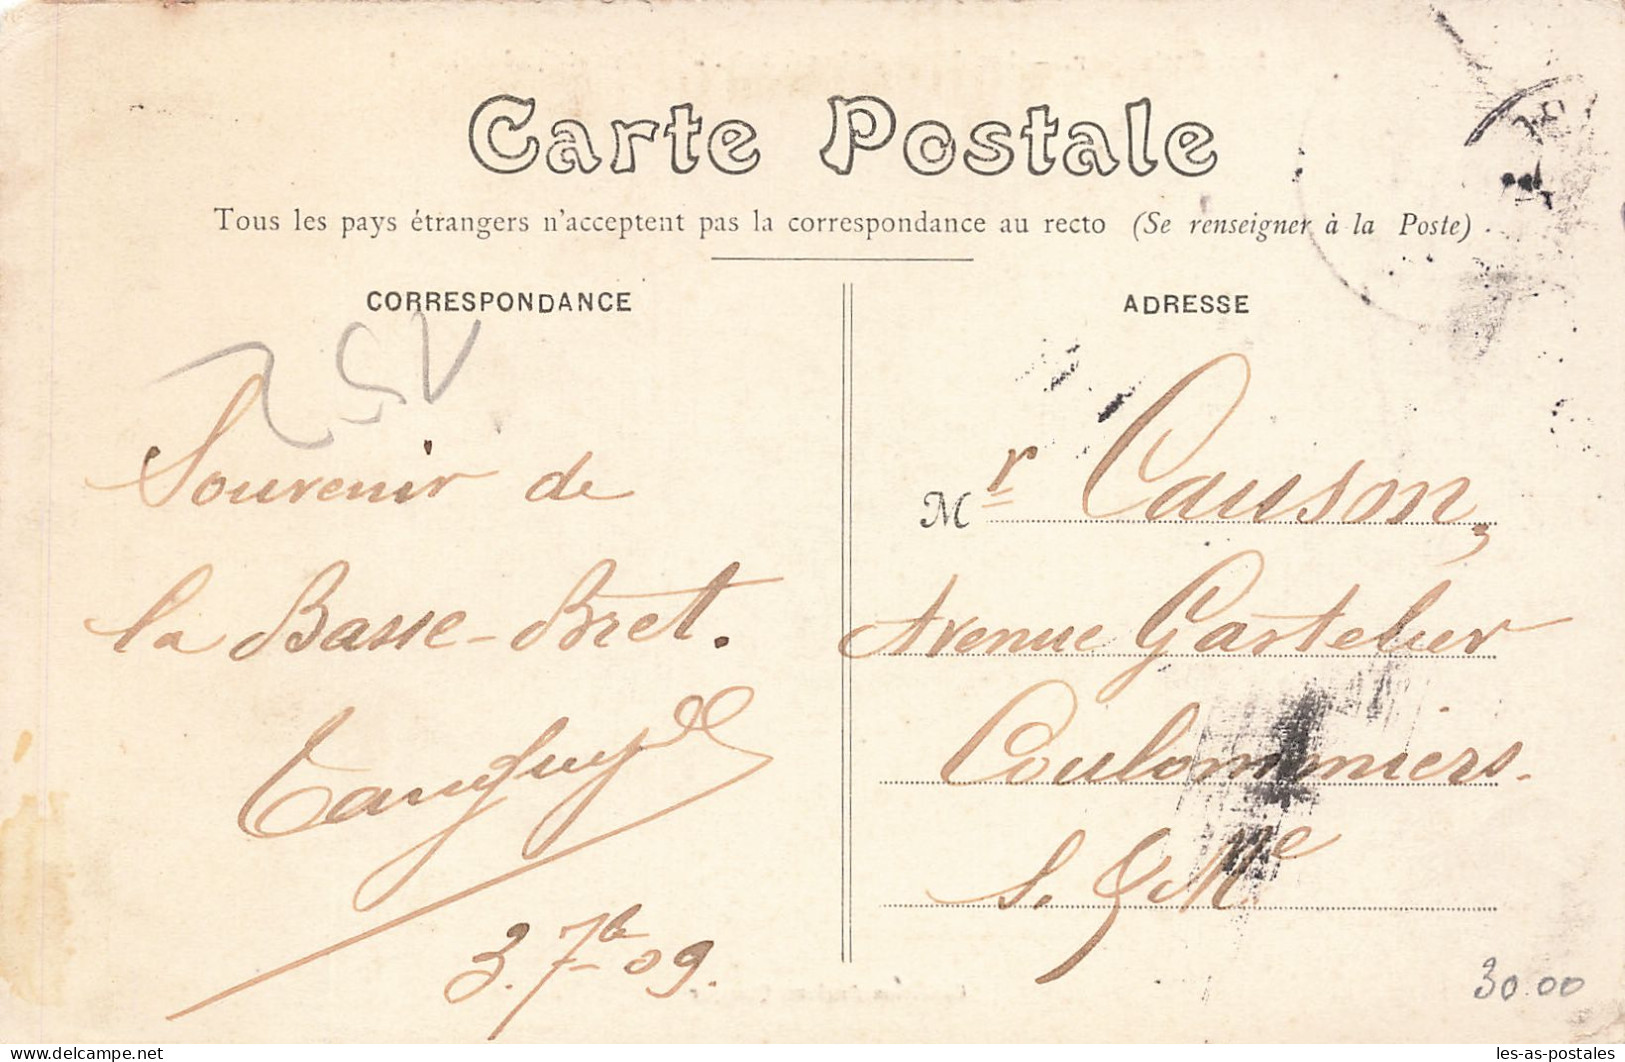 Carte Postale
Tous les pays étrangers n'acceptent pas la correspondance au recto (Se renseigner à la Poste)
CORRESPONDANCE
Souvenir de
la Basse-Bret.
Tanguy
3. 7b 09.
ADRESSE
Mr Causon,
Avenue Gastelier
Coulommiers.
S. & Me
30.00
delcampe.net
les-as-postales